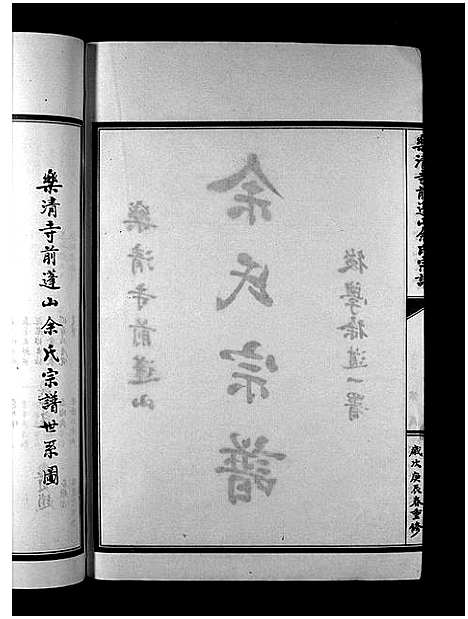 樂清寺前蓬山余氏宗譜
歲次庚辰春重修
後學徐道一署
余氏宗譜
樂清寺前蓬山
樂清寺前蓬山余氏宗譜世系圖